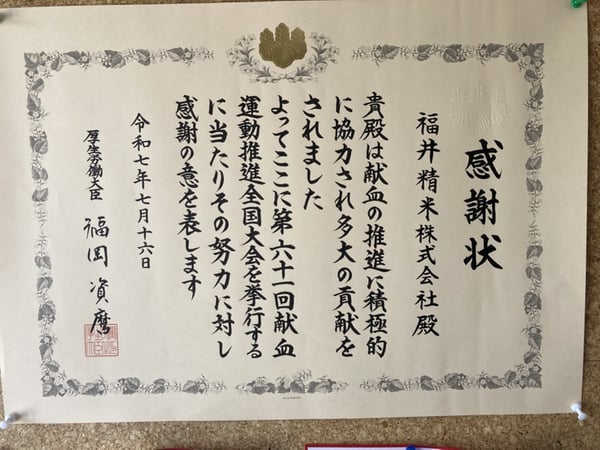 感謝状
福井精米株式会社殿
貴殿は献血の推進に積極的
に協力され多大の貢献を
されました
よってここに第六十一回献血
運動推進全国大会を挙行する
に当たりその努力に対し
感謝の意を表します
令和七年七月十六日
厚生労働大臣 福岡資麿